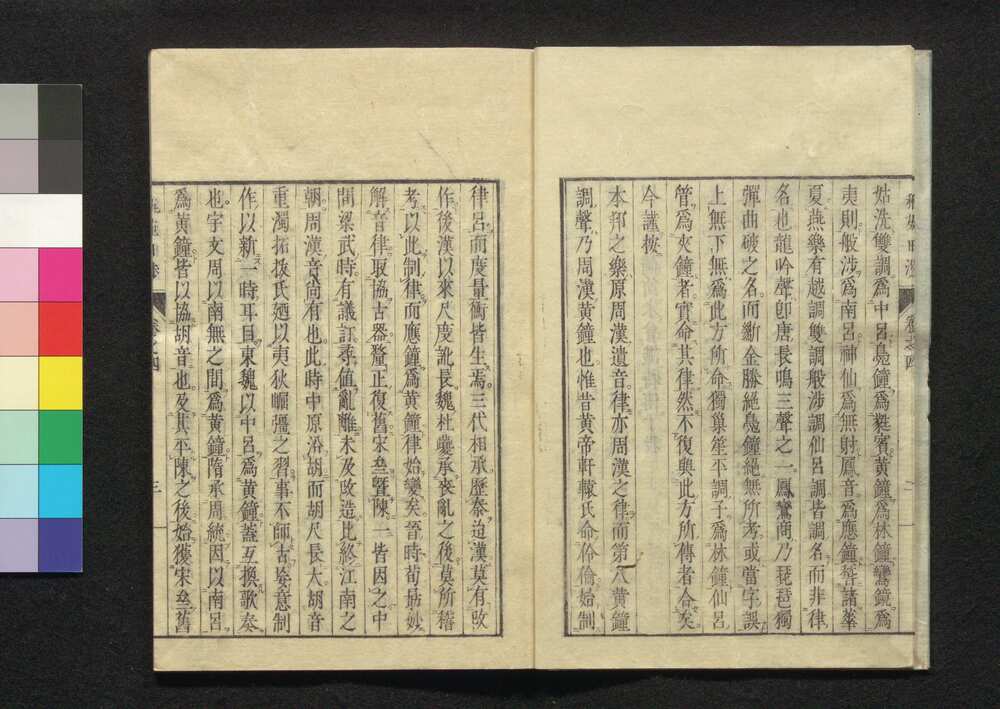 姑洗雙調爲中呂鳧鐘爲蕤賓黃鐘爲林鐘鸞鏡爲
夷則般涉爲南呂神仙爲無射鳳音爲應鐘諸華
夏燕樂有越調雙調般涉調仙呂調皆調名而非律
名也龍吟聲卽唐長鳴三聲之一鳳鸞商乃琵琶獨
彈曲破之名而斷金勝絕鳧鐘絕無所考或當字誤
上無下無爲此方所命獨巢笙平調子爲林鐘仙呂
管爲夾鐘者實命其律然不復與此方所傳者合矣
今謹按
本邦之樂原周漢遺音律亦周漢之律而第八黃鐘
調聲乃周漢黃鐘也惟昔黃帝軒轅氏命伶倫始制
律呂而度量衡皆生焉三代相承歷秦迨漢莫有改
作後漢以來尺度訛長魏杜夔承喪亂之後莫所稽
考以此制律而應鐘爲黃鐘律始變矣晉時荀勗妙
解音律取協古器釐正復舊宋𠫵曁陳一皆因之中
間梁武時有議訂尋値亂離未及改造比終江南之
朝周漢音尙有也此時中原沿胡而胡尺長大胡音
重濁拓拔氏廼以夷狄崛彊之習事不師古妄意制
作以新一時耳目東魏以中呂爲黃鐘蓋互換歌奏
也宇文周以南無之間爲黃鐘隋承周統因以南呂
爲黃鐘皆以協胡音也及其平陳之後始獲宋𠫵舊
卷之四
三